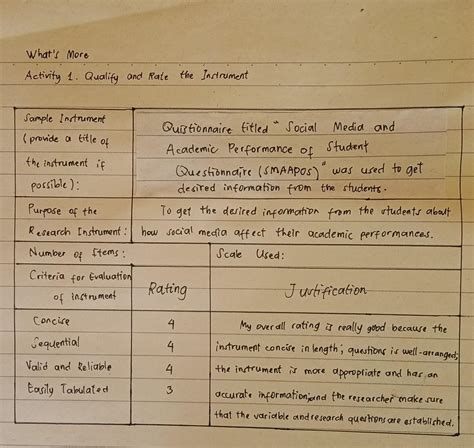 What's More
Activity 1. Qualify and Rate the Instrument
Sample Instrument
(provide a title of
the instrument if
possible):
Questionnaire titled "Social Media and
Academic Performance of Student
Questionnaire (SMAAPOS)" was used to get
desired information from the students.
Purpose of the
Research Instrument:
To get the desired information from the students about
how social media affect their academic performances.
Number of Items:
Scale Used:
Criteria for Evaluation
of Instrument
Rating
Justification
Concise
4
Sequential
4
Valid and Reliable
4
Easily Tabulated
3
My overall rating is really good because the
instrument concise in length; questions is well-arranged;
the instrument is more appropriate and has an
accurate information; and the researcher make sure
that the variable and research questions are established.